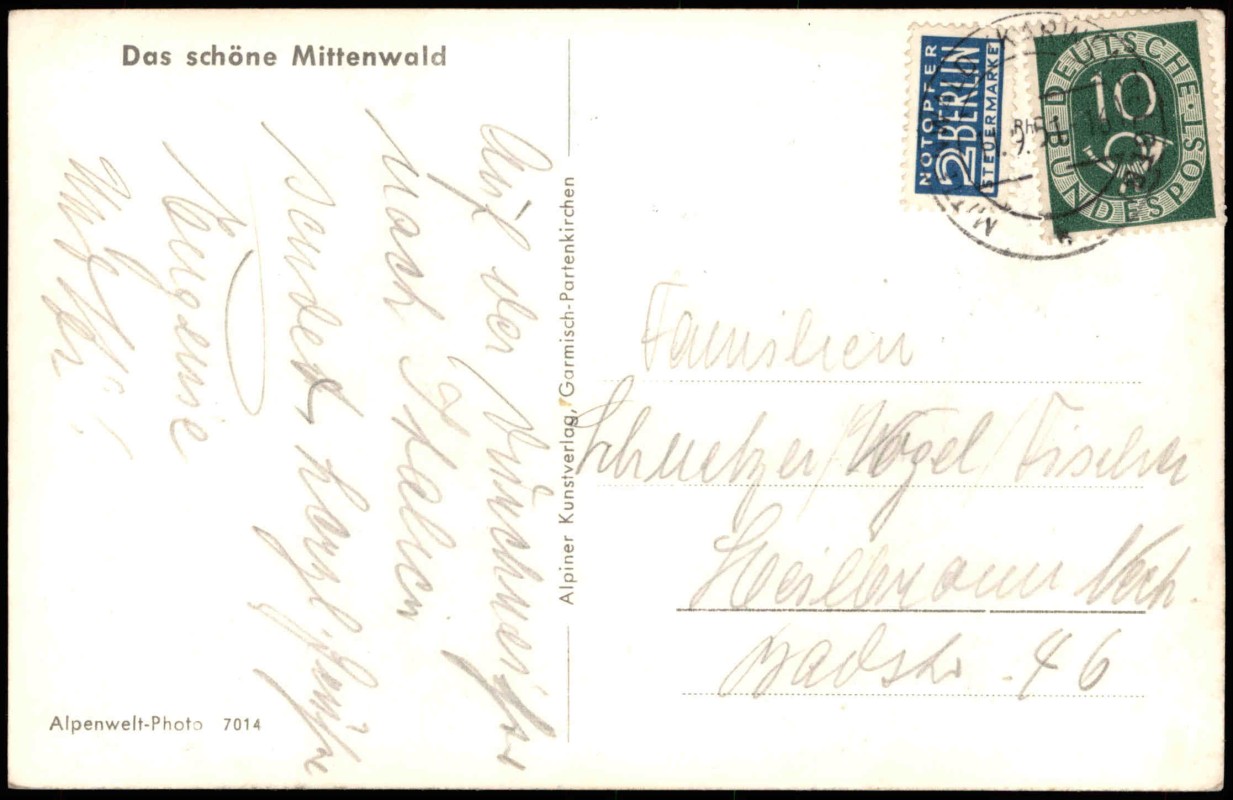 Das schöne Mittenwald
Auf der Durchreise
nach Italien
sendet herzl. Grüße
Familien
Schmelzer/Vogel/Fischer
Heilbronn
Badstr. 46
Alpiner Kunstverlag, Garmisch-Partenkirchen
Alpenwelt-Photo 7014
NOTOPFER
2 BERLIN
STEUERMARKE
DEUTSCHE
BUNDESPOST
10